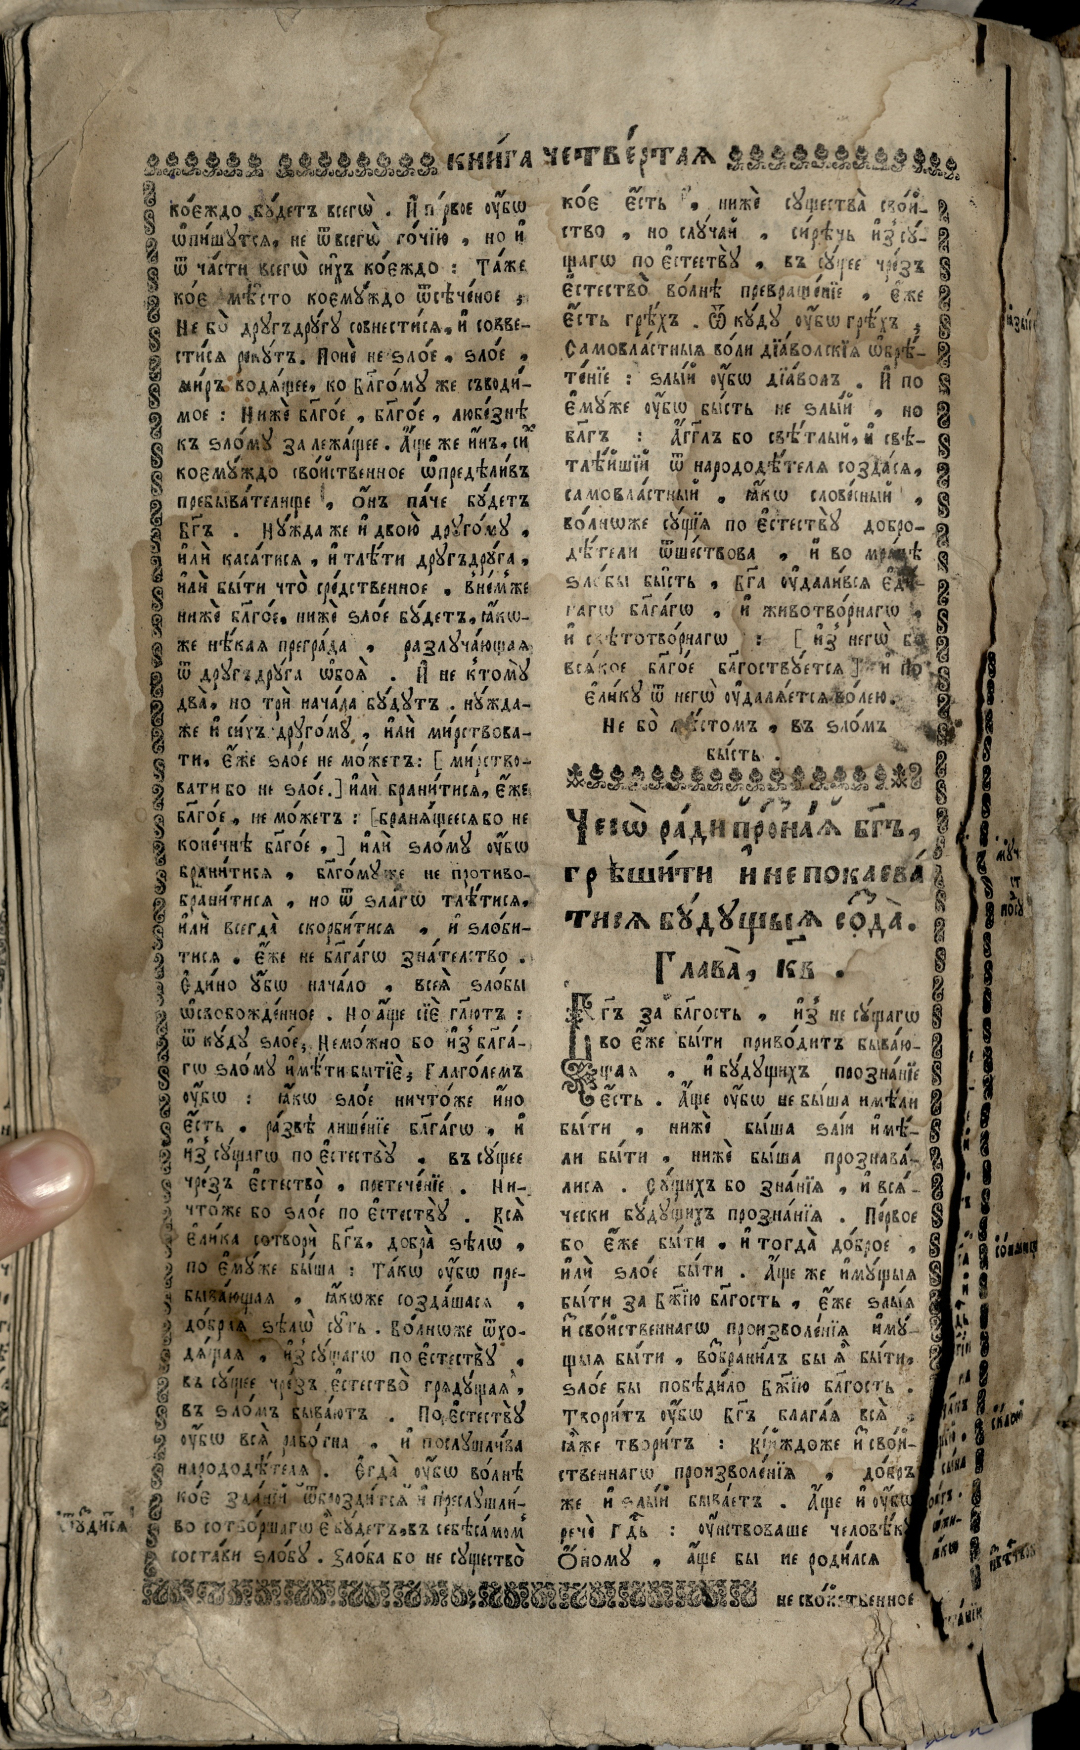 КНИ́ГА ЧЕТВЕ́РТАѦ
коеждо бу́детъ всегѡ̀ . И҆ пе́рвое ᲂу҆́бѡ
ѡ҆пи́шутсѧ, не ѿ всегѡ̀ го́чїю , но и҆
ѿ ча́сти всегѡ̀ си́хъ ко́еждо : Та́же
ко́е мѣ́сто коемꙋ́ждо ѿсѣче́ное ;
Не бо̀ дрꙋгъдрꙋ́гꙋ совнести́сѧ, и҆ совве-
сти́сѧ рекꙋ́тъ. Понѐ не ѕло́е , ѕло́е ,
ми́ръ водѧ́щее, ко бл҃го́мꙋ же съводи́-
мое : Нижѐ бл҃го́е , бл҃го́е , любе́знѣ
къ ѕло́мꙋ залежа́щее . А҆́ще же и҆́нъ, си́
коемꙋ́ждо сво́йственное ѡ҆предѣли́въ
пребыва́телище , о҆́нъ па́че бꙋ́детъ
Бг҃ъ . Нꙋ́жда же и҆ двою̀ дрꙋго́мꙋ ,
и҆лѝ каса́тисѧ , и҆ тлѣ́ти дрꙋгъдрꙋ́га ,
и҆лѝ бы́ти что̀ сре́дственное . в̾не́мже
нижѐ бл҃го́е, нижѐ ѕло́е бꙋ́детъ, ꙗ҆́кѡ-
же нѣ́каѧ прегра́да , разлꙋча́ющаѧ
ѿ дрꙋгъдрꙋ́га ѡ҆боѧ̀ . И҆ не ктомꙋ̀
два̀, но трѝ нача́ла бꙋ́дꙋтъ . нꙋ́жда-
же и҆ си́хъ дрꙋго́мꙋ , и҆лѝ ми́рствова-
ти, е҆́же ѕло́е не мо́жетъ: [ ми́рство-
вати бо не ѕло́е.] и҆лѝ брани́тисѧ, е҆́же
бл҃го́е , не мо́жетъ : [бранѧ́щеесѧ бо не
коне́чнѣ бл҃го́е , ] и҆лѝ ѕло́мꙋ ᲂу҆́бѡ
брани́тисѧ , бл҃го́мꙋже не противо-
брани́тисѧ , но ѿ ѕла́гѡ тлѣ́тисѧ,
и҆лѝ всегда̀ скорби́тисѧ , и҆ ѕло́би-
тисѧ . е҆́же не бл҃га́гѡ зна́телство .
Е҆ди́но ᲂу҆́бѡ нача́ло , всеѧ̀ ѕло́бы
ѡ҆свобожде́нное . Но а҆́ще сїѐ гл҃ютъ :
ѿ кꙋ́дꙋ ѕло́е; Немо́жно бо и҆з̾ бл҃га́-
гѡ ѕло́мꙋ и҆мѣ́ти бытїѐ; Глаго́лемъ
ᲂу҆́бѡ : ꙗ҆́кѡ ѕло́е ничто́же и҆́но
є҆́сть , ра́звѣ лише́нїе бл҃га́гѡ , и҆
и҆з̾ сꙋ́щагѡ по є҆стествꙋ̀ , въ сꙋ́щее
чре́зъ є҆стество̀ , претече́нїе . Ни-
что́же бо ѕло́е по є҆стествꙋ̀ . Всѧ̀
є҆ли́ка сотворѝ Бг҃ъ, добра̀ ѕѣлѡ̀ ,
по є҆мꙋ́же бы́ша : Та́кѡ ᲂу҆́бѡ пре-
быва́ющаѧ , ꙗ҆́коже созда́шасѧ ,
дѡ́браѧ ѕѣлѡ̀ сꙋ́ть . Во́лнѡже ѿхо-
дѧ́щаѧ , и҆з̾ сꙋ́щагѡ по є҆стествꙋ̀ ,
въ сꙋ́щее чре́зъ є҆стество̀ грѧдꙋ́щаѧ ,
въ ѕло́мъ быва́ютъ . По є҆стествꙋ̀
ᲂу҆́бѡ всѧ̀ рабо́тна , и҆ послꙋшли́ва
народодѣ́телѧ . Є҆гда̀ ᲂу҆́бѡ во́лнѣ
ко́е зда́нїй и҆ преслꙋшли́-
во сотво́ршагѡ є҆̀ бꙋ́детъ, въ себѣ̀са́момъ
соста́ви ѕло́бꙋ . Ѕло́ба бо не сꙋщество̀
ко́е є҆́сть , нижѐ сꙋщества̀ сво́й-
ство , но слꙋ́чай , си́рѣчь и҆з̾ сꙋ́-
щагѡ по є҆стествꙋ̀ , въ сꙋ́щее чре́зъ
є҆стество̀ во́лнѣ превраще́нїе , є҆́же
є҆́сть грѣ́хъ . Ѿ кꙋ́дꙋ ᲂу҆́бѡ грѣ́хъ ;
Самовла́стныѧ во́ли дїа́волскїѧ ѡ҆брѣ́-
те́нїе : ѕлы́й ᲂу҆́бѡ дїа́волъ . И҆ по
є҆мꙋ́же ᲂу҆́бѡ бы́сть не ѕлы́й , но
бл҃гъ : А҆́гг҃лъ бо свѣ́тлый, и҆ свѣ-
тлѣ́йшїй ѿ народодѣ́телѧ созда́сѧ,
самовла́стный , ꙗ҆́кѡ слове́сный ,
во́лнѡже сꙋ́щїѧ по є҆стествꙋ̀ добро-
дѣ́тели ѿше́ствова , и҆ во мра́цѣ
ѕло́бы бы́сть , Бг҃а ᲂу҆дали́всѧ є҆ди́-
нагѡ бл҃га́гѡ , и҆ животво́рнагѡ ,
и҆ свѣтотво́рнагѡ : [ и҆з̾ негѡ̀ бо
всѧ́кое бл҃го́е бл҃гоствꙋ́етсѧ ] и҆ по
є҆ли́кꙋ ѿ негѡ̀ ᲂу҆далѧ́етсѧ во́лею.
Не бо̀ мѣ́стомъ , въ ѕло́мъ
бы́сть .
Чегѡ̀ ра́ди прⷪ҇зна́ѧ бг҃ъ,
грѣши́ти и҆ не покаева́
тисѧ бꙋ́дꙋщыѧ созда̀.
Глава̀, к҃в .
Бг҃ъ за бл҃гость , и҆з̾ не сꙋ́щагѡ
во є҆́же бы́ти приво́дитъ быва́ю-
щаѧ , и҆ бꙋ́дꙋщихъ прозна́нїе
є҆́сть . А҆́ще ᲂу҆́бѡ не бы́ша и҆мѣ́ли
бы́ти , нижѐ бы́ша ѕлі́и и҆мѣ́-
ли бы́ти , нижѐ бы́ша прознава́-
лисѧ . Сꙋ́щихъ бо зна́нїѧ , и҆ всѧ́-
чески бꙋ́дꙋщихъ прозна́нїѧ . Пе́рвое
бо є҆́же бы́ти , и҆ тогда̀ до́брое ,
и҆лѝ ѕло́е бы́ти . А҆́ще же и҆мꙋ́щыѧ
бы́ти за Бж҃їю бл҃гость , є҆́же ѕлы́ѧ
ѿ сво́йственнагѡ произволе́нїѧ и҆мꙋ́-
щыѧ бы́ти , возбрани́лъ бы ѧ҆̀ бы́ти,
ѕло́е бы побѣди́ло Бж҃їю бл҃гость .
Твори́тъ ᲂу҆́бѡ Бг҃ъ блага́ѧ всѧ̀ ,
ꙗ҆́же твори́тъ : Кі́йждоже ѿ сво́й-
ственнагѡ произволе́нїѧ , до́бръ
же и҆ ѕлы́й быва́етъ . А҆́ще и҆ ᲂу҆́бѡ
речѐ гдⷭ҇ь : ᲂу҆́нствоваше человѣ́кꙋ
ѻ҆́номꙋ , а҆́ще бы не роди́лсѧ
не сво́йственное